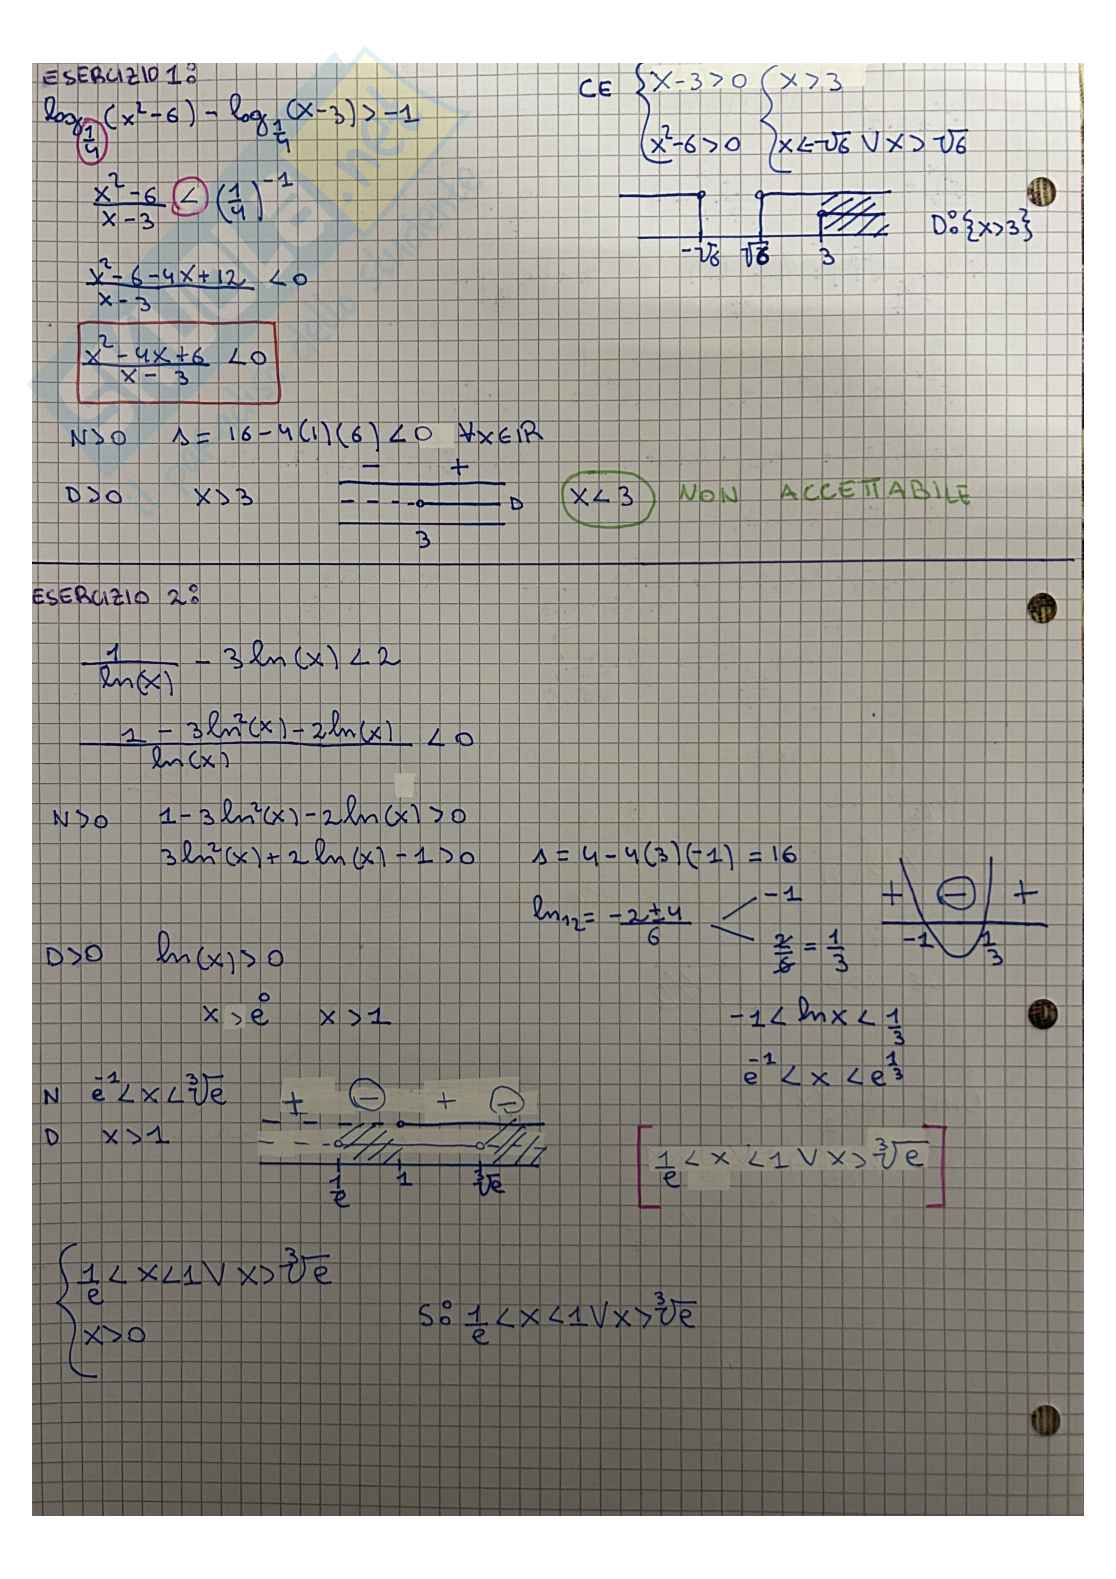 ESERCIZIO 1:
log_{1/4}(x²-6) - log_{1/4}(x-3) > -1
CE { x-3>0 { x>3
x²-6>0 x<-√6 ∨ x>√6
(x²-6)/(x-3) < (1/4)^{-1}
-√6 √6 3 D:{x>3}
(x²-6-4x+12)/(x-3) < 0
(x²-4x+6)/(x-3) < 0
N>0 Δ= 16-4(1)(6)<0 ∀x∈ℝ
- +
D>0 x>3 D x<3 NON ACCETTABILE
3
ESERCIZIO 2:
1/ln(x) - 3ln(x) < 2
(1 - 3ln²(x) - 2ln(x))/ln(x) < 0
N>0 1-3ln²(x)-2ln(x)>0
3ln²(x)+2ln(x)-1>0 Δ=4-4(3)(-1)=16
ln₁₂= (-2±4)/6 -1
2/6 = 1/3
+ - +
-1 1/3
D>0 ln(x)>0
x>e⁰ x>1
-1< lnx < 1/3
e^{-1} < x < e^{1/3}
N e^{-1}<x<∛e + - + -
D x>1
1/e 1 ∛e
[1/e < x < 1 ∨ x > ∛e]
{ 1/e < x < 1 ∨ x > ∛e
x>0
S: 1/e < x < 1 ∨ x > ∛e